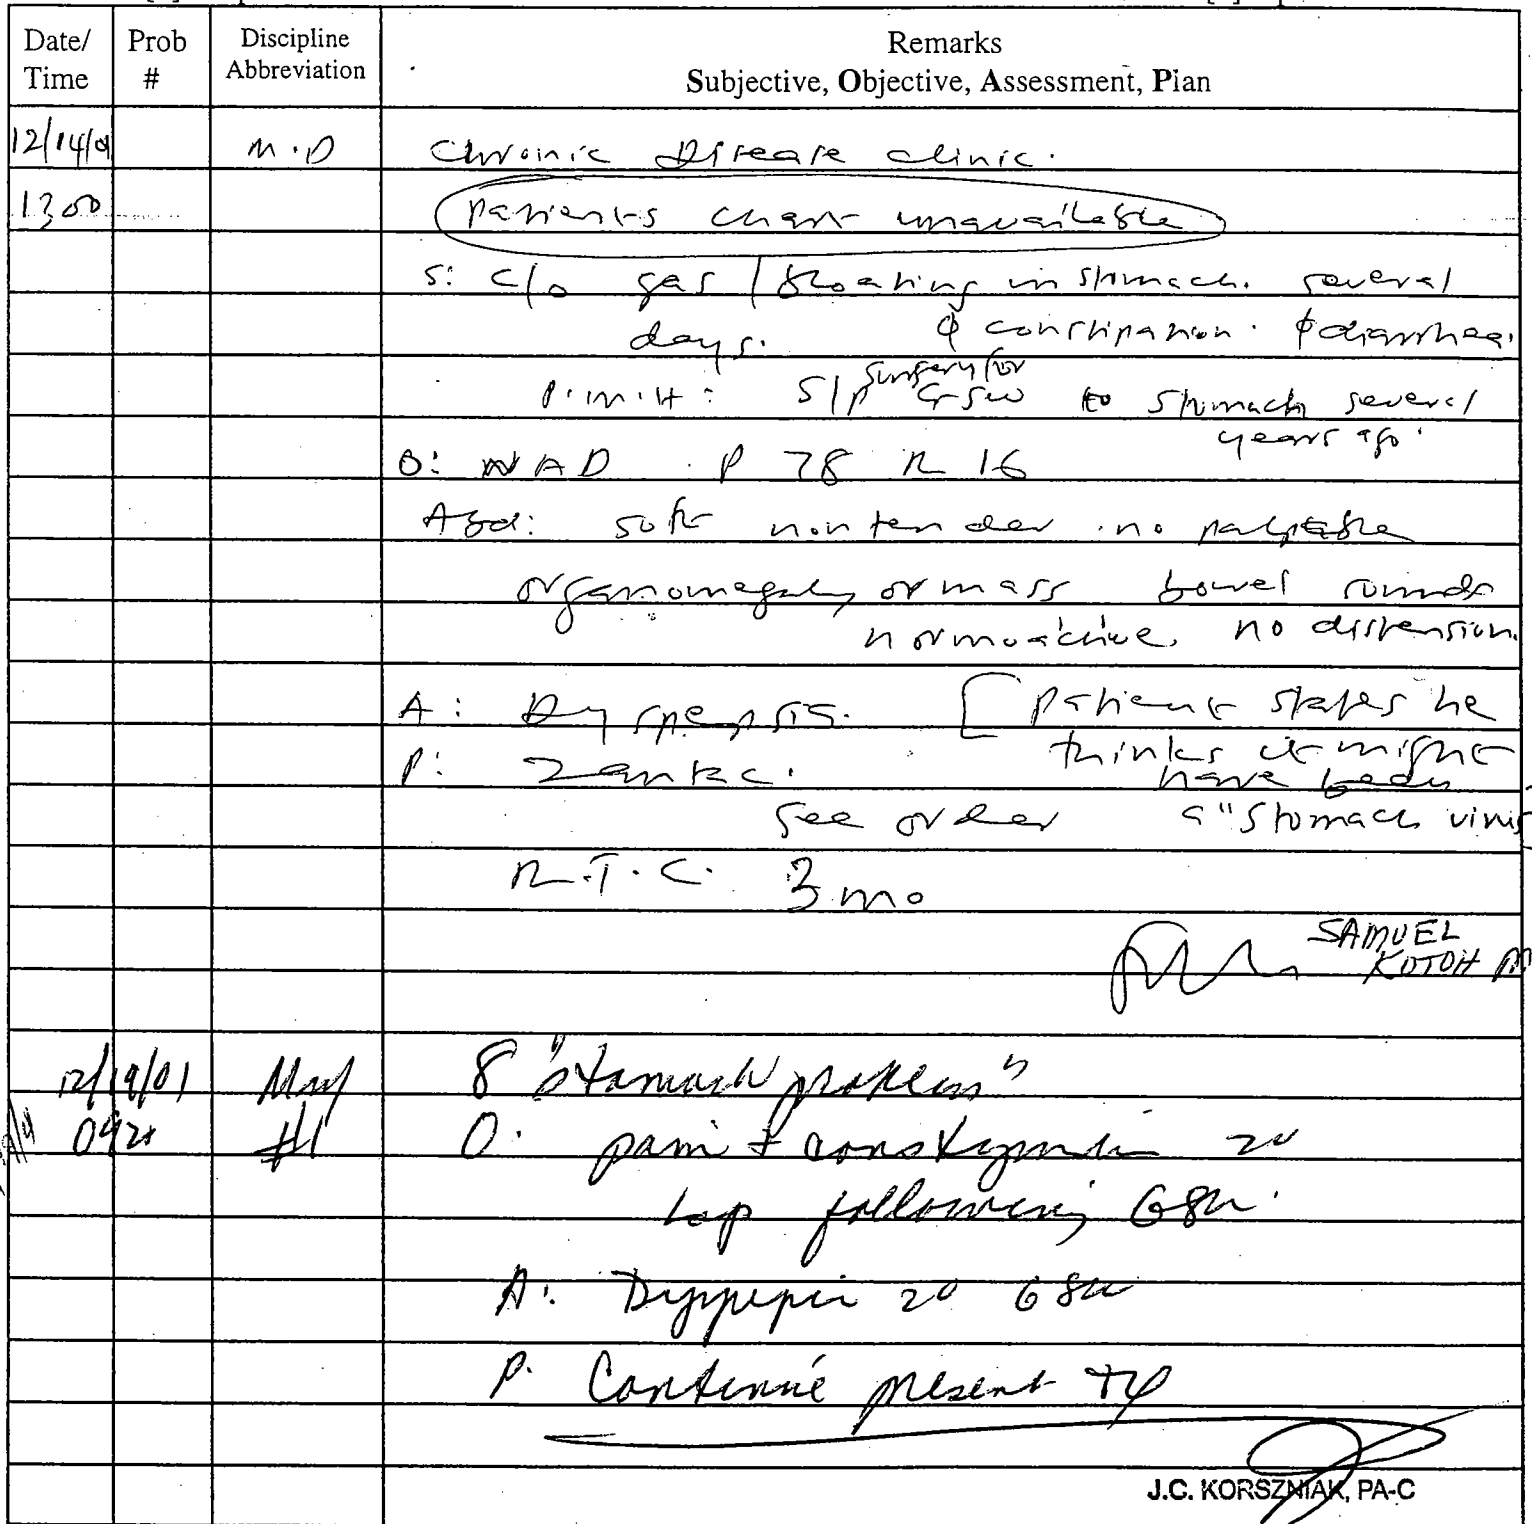 Date/ Time Prob # Discipline Abbreviation Remarks
Subjective, Objective, Assessment, Plan
12/14/01 M.D Chronic Disease clinic.
1300 Patients chart unavailable
S: c/o gas / bloating in stomach. several
days. ϕ constipation. ϕ diarrhea.
P.M.H: S/P surgery for GSW to stomach several
years ago.
O: NAD P 78 R 16
Abd: soft nontender no palpable
organomegaly or mass bowel sounds
normoactive. no distension.
A: Dyspepsia. [ Patient states he
thinks it might
P: Zantac. have been
see order a "stomach virus
R.T.C. 3 mo
SAMUEL
KOTOH
12/19/01 S "stomach problems"
#1 O: pain + constipation 2°
lap following GSW.
A: Dyspepsia 2° GSW
P. Continue present
J.C. KORSZNIAK, PA-C